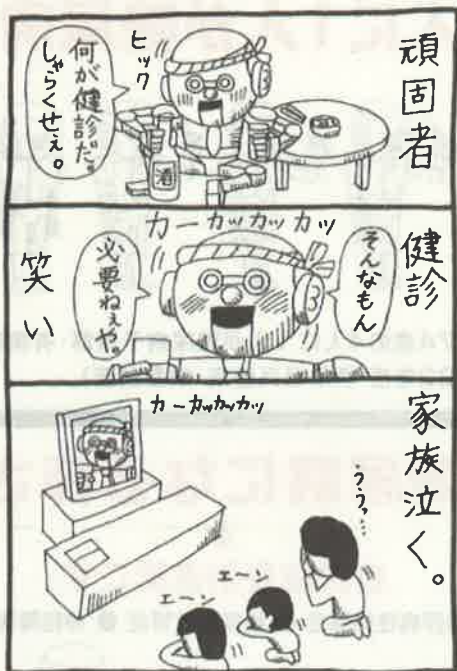 頑固者
ヒック
何が健診だ。
しゃらくせぇ。
酒
健診
笑い
カーカッカッカッ
そんなもん
必要ねぇや。
家族泣く。
カーカッカッカッ
うぅっ…
エーン
エーン